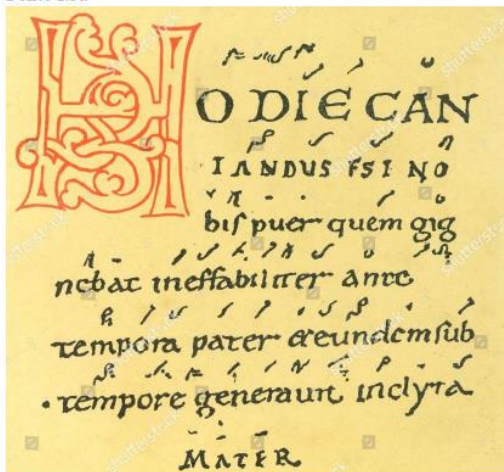 HODIE CAN
TANDUS EST NO
bis puer quem gig
nebat ineffabiliter ante
tempora pater & eundem sub
· tempore generauit inclyta
MATER